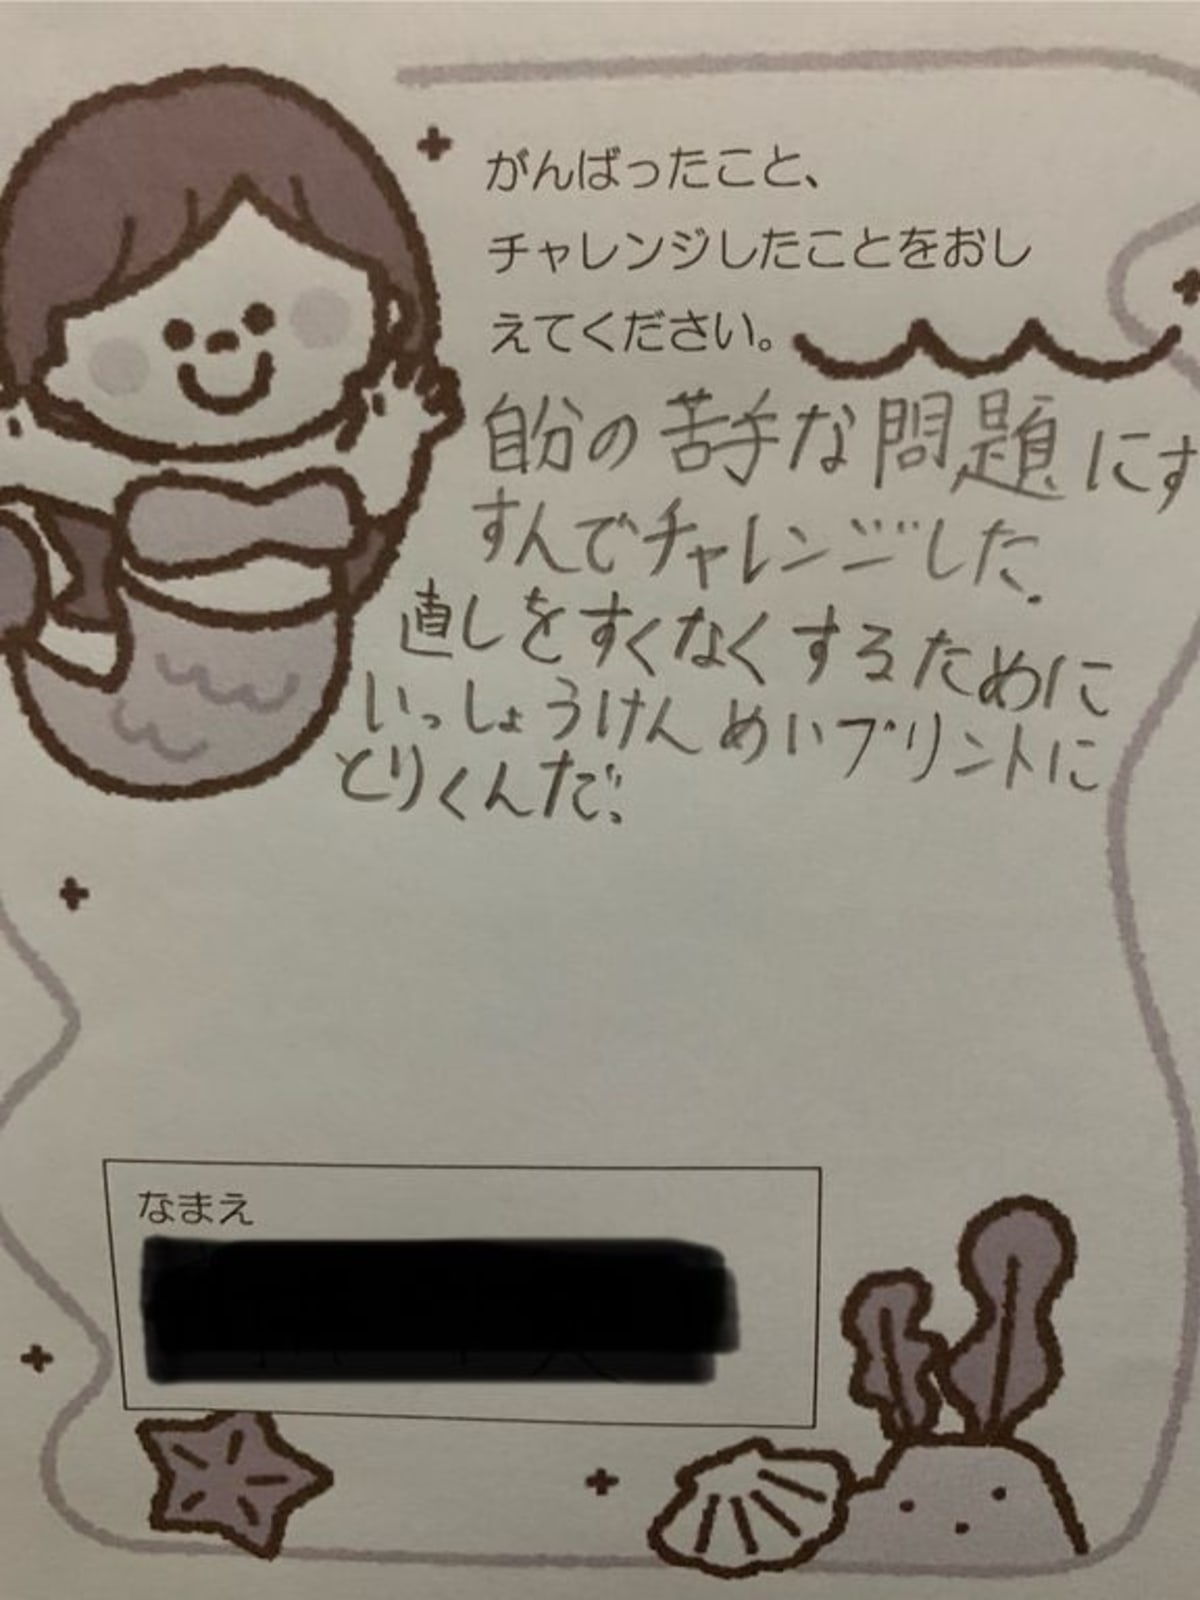 がんばったこと、
チャレンジしたことをおし
えてください。
自分の苦手な問題にす
すんでチャレンジした.
直しをすくなくするために
いっしょうけんめいプリントに
とりくんだ。
なまえ